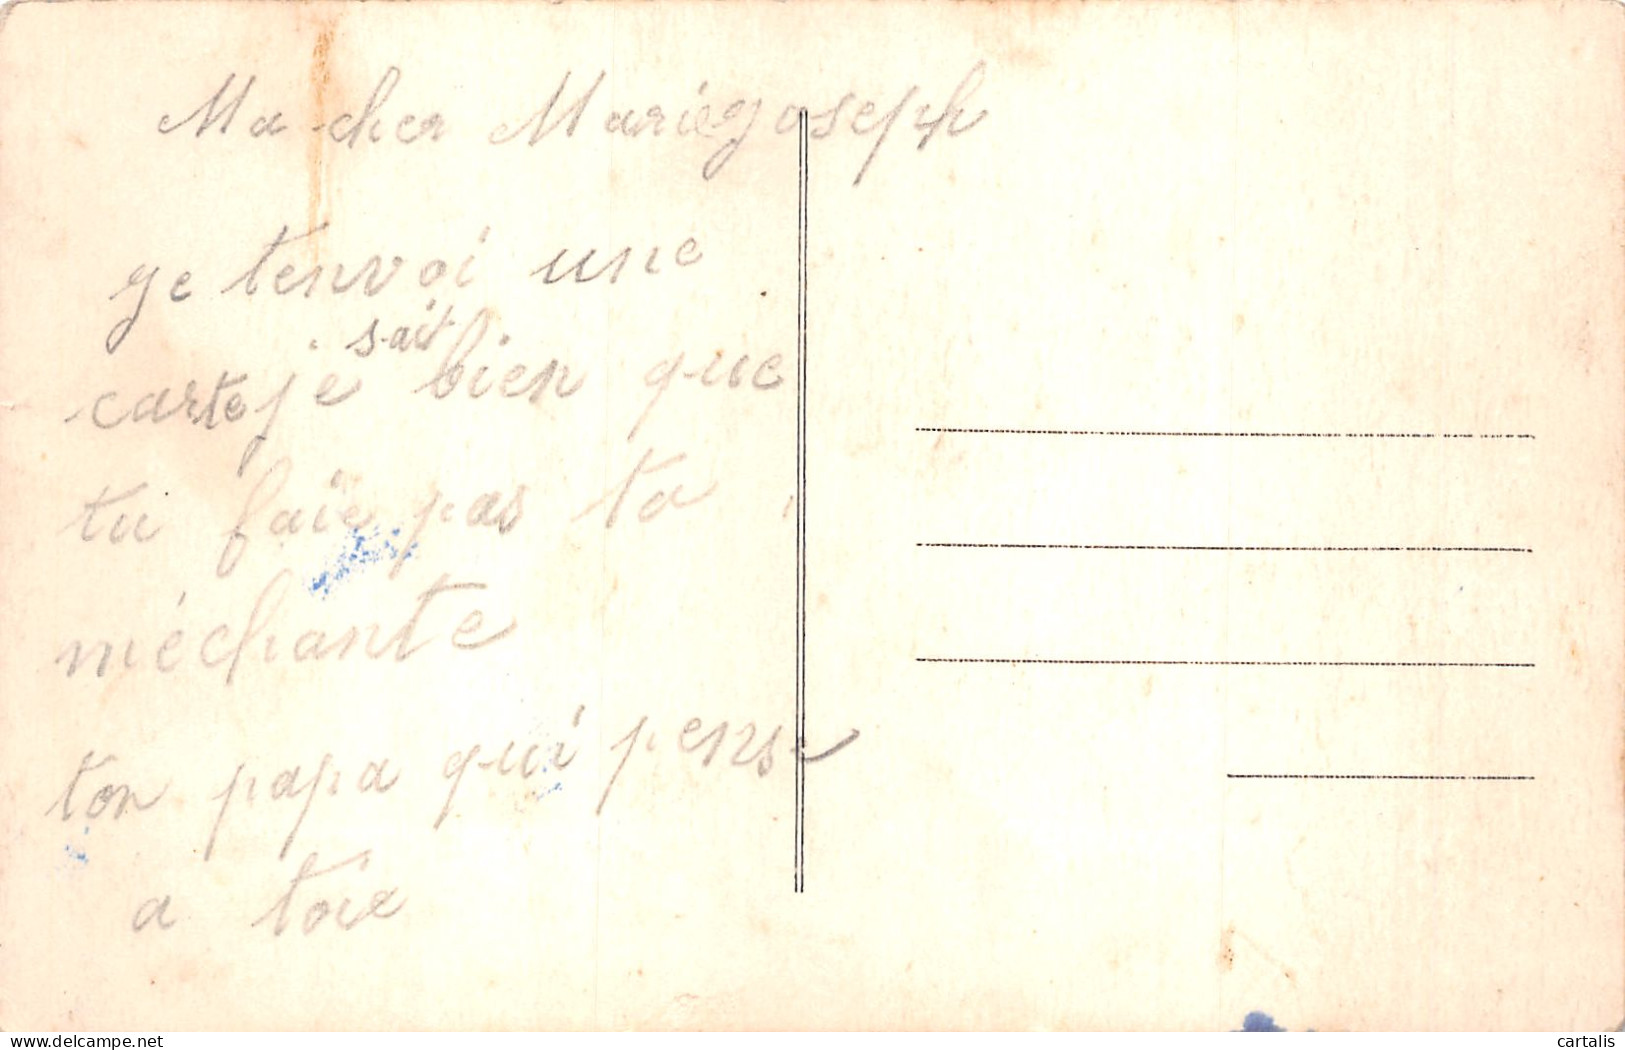 Ma cher Mariejoseph
je tenvoi une
sait
carte je bien que
tu faie pas ta
méchante
ton papa qui pense
a toie
delcampe.net
cartalis